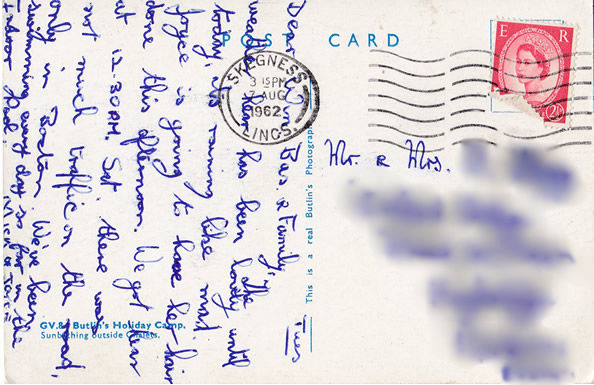 POST CARD
E R
2½
SKEGNESS
3 15PM
7 AUG
1962
LINCS.
Tues
Dear Win, & Family, The
weather here has been lovely until
today, its raining like mad.
Joyce is going to have her hair
done this afternoon. We got here
at 12.30PM. Sat, there was
not much traffic on the road,
only in Boston. We've been
swimming every day so far in the
Indoor Pool.
Mick & Joyce
Mr. & Mrs.
This is a real Butlin's Photograph
GV.8 Butlin's Holiday Camp.
Sunbathing outside Chalets.